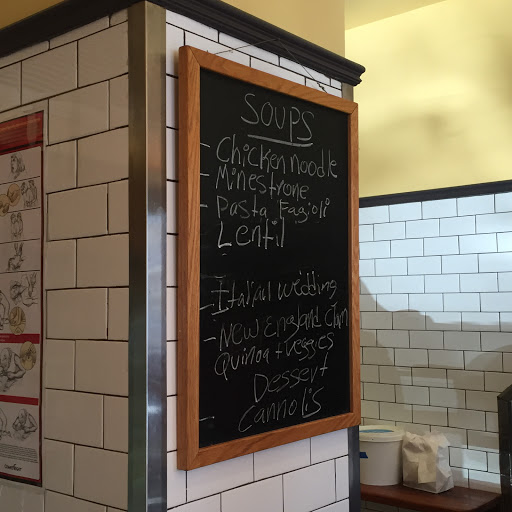 SOUPS
- Chicken noodle
- Minestrone
- Pasta Fagioli
Lentil
- Italian wedding
- New England Clam
Quinoa + veggies
Dessert
- Cannolis